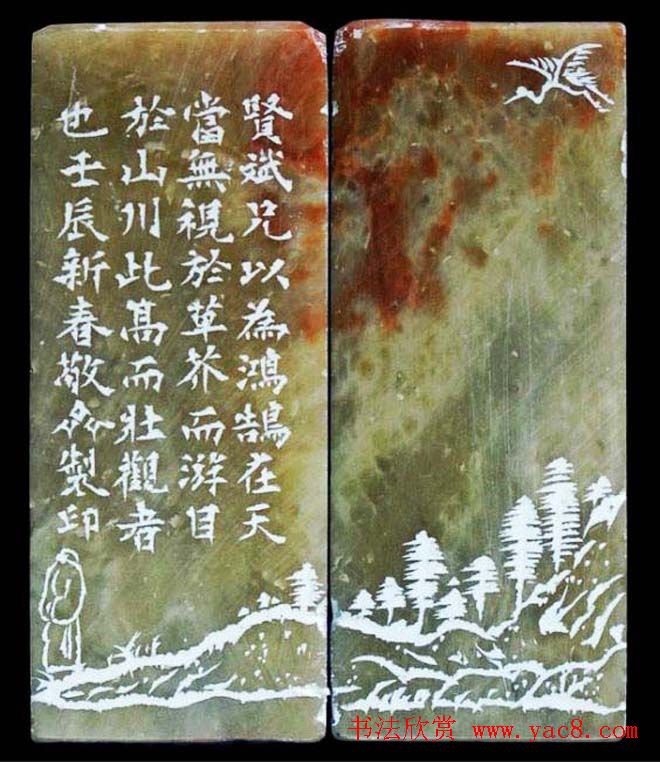 賢斌兄以為鴻鵠在天
當無視於草芥而游目
於山川此髙而壯觀者
也壬辰新春敬久製印
书法欣赏 www.yac8.com